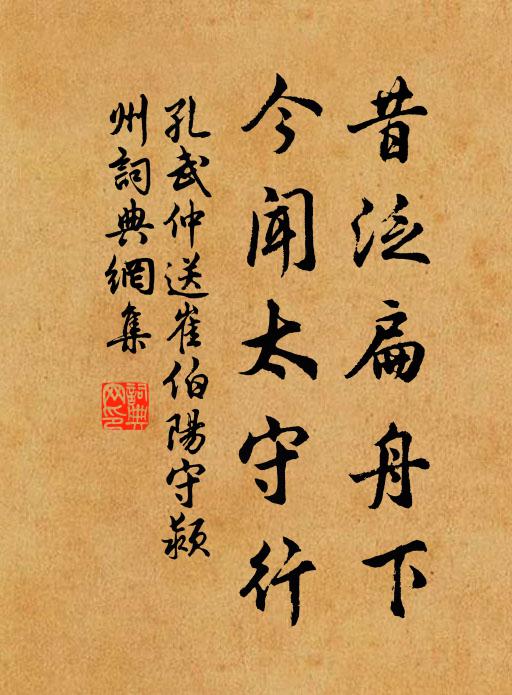 昔泛扁舟下
今闻太守行
孔武仲送崔伯陽守颍
州詞典網集
詞典網印